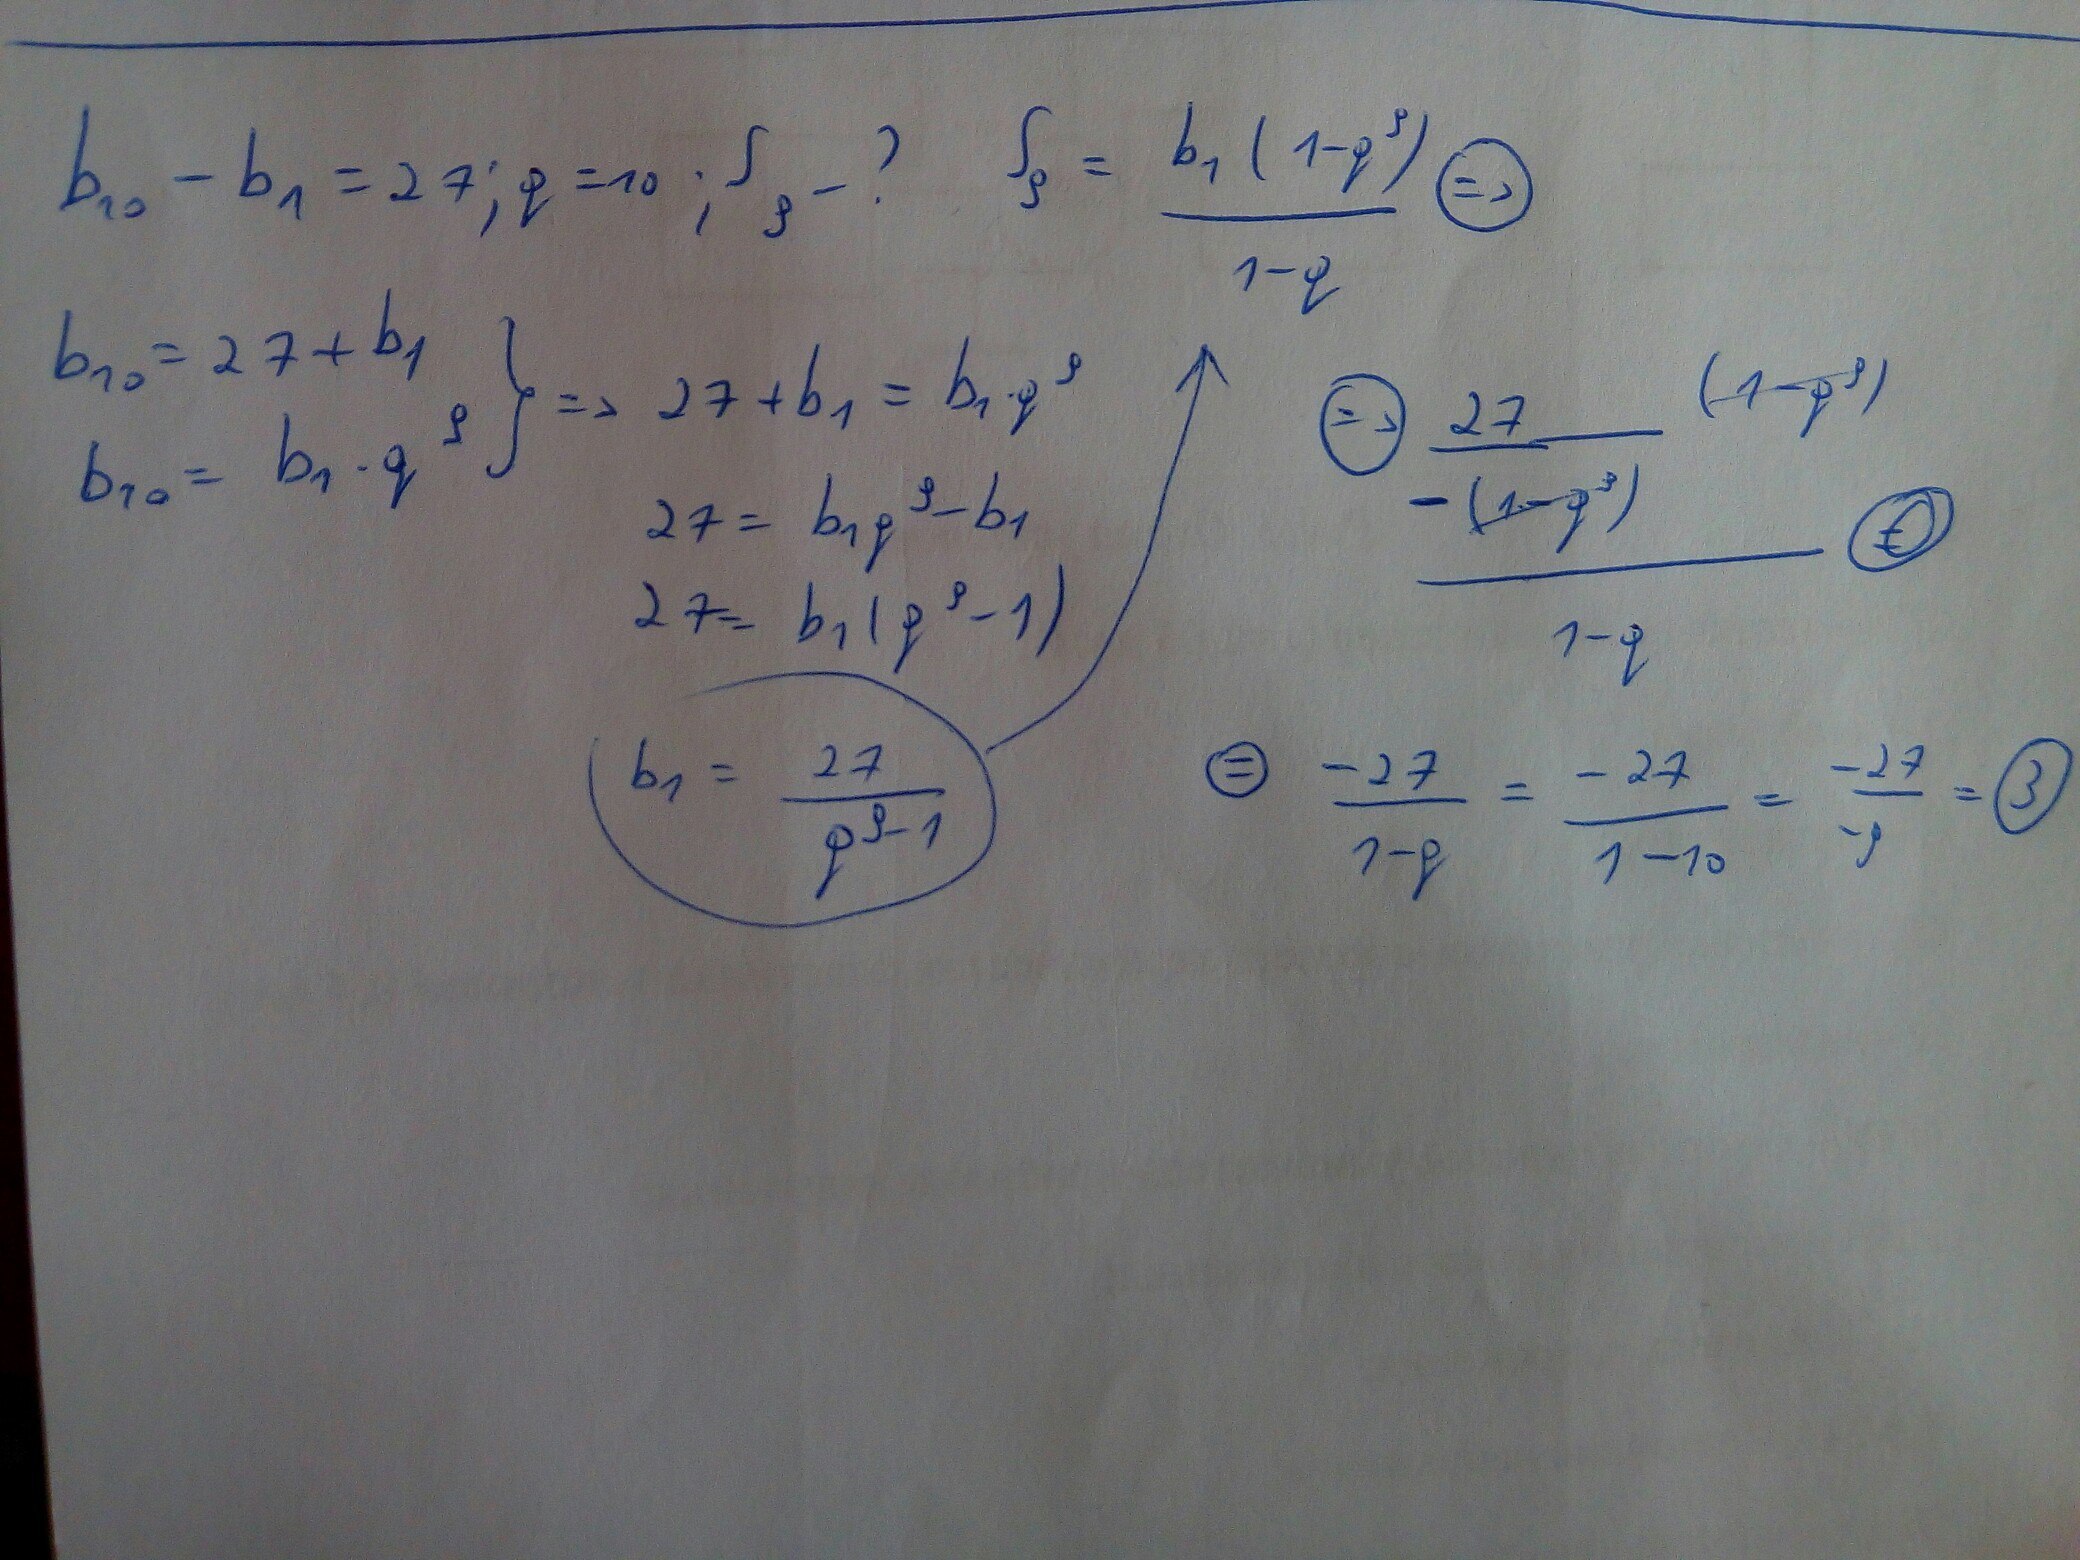 b₁₀ - b₁ = 27; q = 10; S₉ - ?
S₉ = b₁(1-q⁹)/(1-q) =>
b₁₀ = 27 + b₁
b₁₀ = b₁·q⁹ } => 27 + b₁ = b₁·q⁹
27 = b₁q⁹ - b₁
27 = b₁(q⁹ - 1)
b₁ = 27/(q⁹-1)
=> 27/(-(1-q⁹)) (1-q⁹)/(1-q) =
= -27/(1-q) = -27/(1-10) = -27/-9 = 3